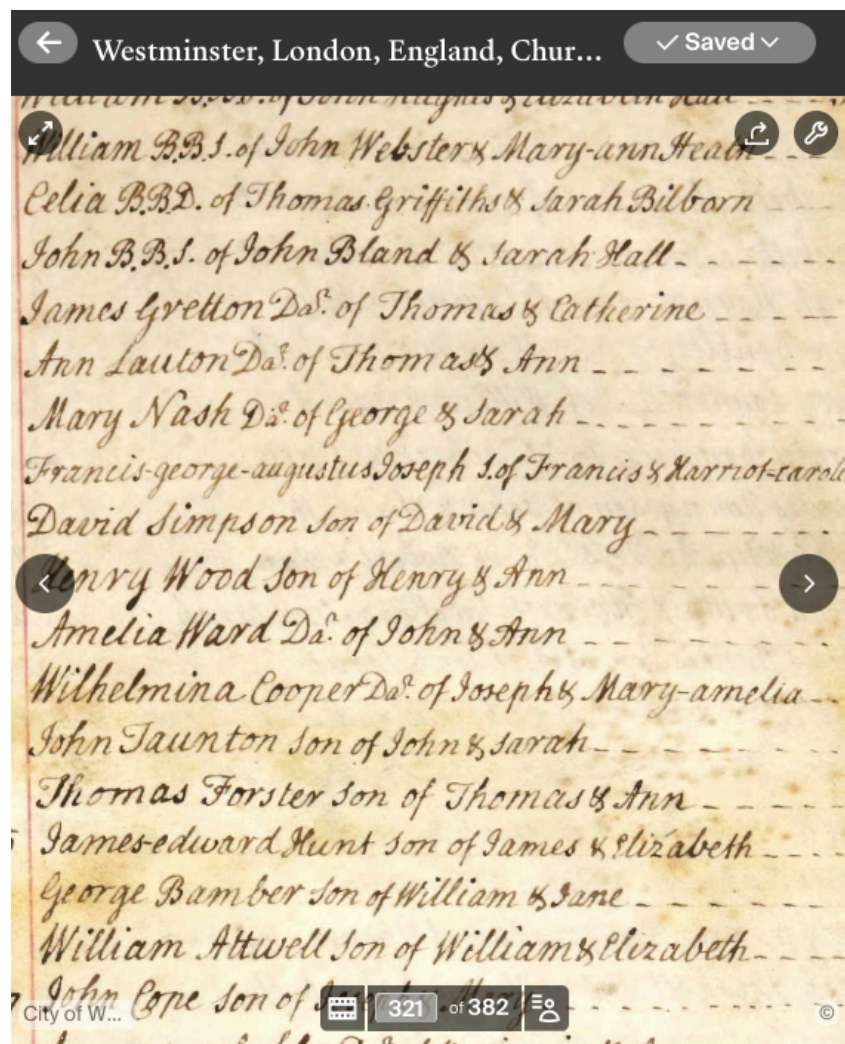 Westminster, London, England, Chur...
Saved
William B.B.S. of John Hughes & Elizabeth Hall
William B.B.S. of John Webster & Mary-ann Heath
Celia B.B.D. of Thomas Griffiths & Sarah Bilborn
John B.B.S. of John Bland & Sarah Hall
James Gretton Dar. of Thomas & Catherine
Ann Lauton Dar. of Thomas & Ann
Mary Nash Dar. of George & Sarah
Francis-george-augustus Joseph S. of Francis & Harriot-carol
David Simpson Son of David & Mary
Henry Wood Son of Henry & Ann
Amelia Ward Dar. of John & Ann
Wilhelmina Cooper Dar. of Joseph & Mary-amelia
John Taunton Son of John & Sarah
Thomas Forster Son of Thomas & Ann
James-edward Hunt Son of James & Elizabeth
George Bamber Son of William & Jane
William Attwell Son of William & Elizabeth
John Cope Son of Joseph & Mary
City of W... 321 of 382 ©